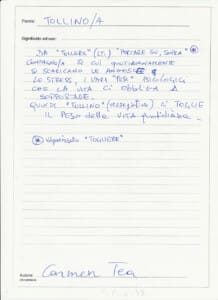 Parola: TOLLINO/A
Significato ed uso:
DA "TOLLERE" (LT.) "PORTARE SU, SOPRA" *
COMPAGNO/A SU CUI QUOTIDIANAMENTE
SI SCARICANO LE ANGOSCE,
LO STRESS, I VARI "PESI" PSICOLOGICI
CHE LA VITA CI OBBLIGA A
SOPPORTARE.
QUINDI "TOLLINO" CI TOGLIE
IL PESO della VITA quotidiana.
* "TOGLIERE"
Autore
Carmen Tea